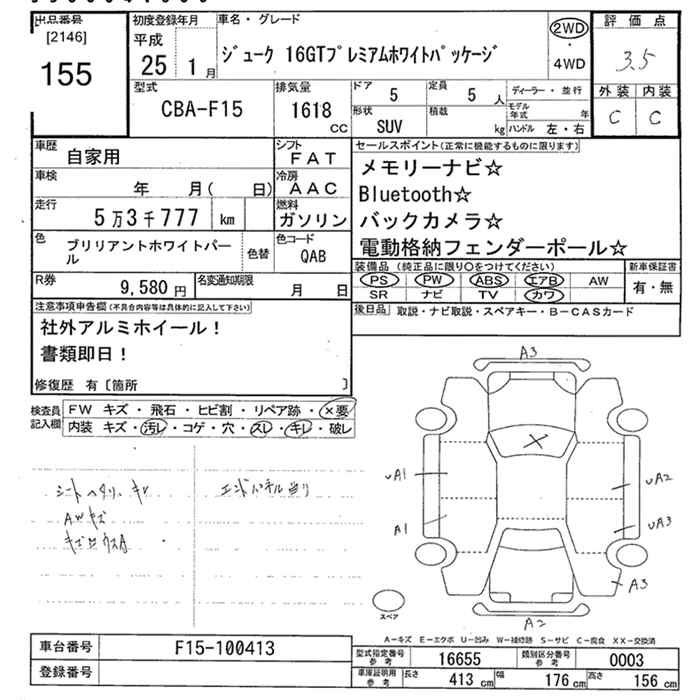 出品番号
[2146]
155
初度登録年月
平成
25 1月
車名・グレード
ジューク 16GTプレミアムホワイトパッケージ
2WD
・
4WD
評価点
3.5
外装 内装
C C
型式
CBA-F15
排気量
1618
CC
ドア 5
定員 5 人
形状
SUV
積載
kg
ディーラー・並行
モデル年式 年
ハンドル 左・右
車歴 自家用
シフト FAT
車検 年 月( 日)
冷房 AAC
走行 5万3千777 km
燃料 ガソリン
色 ブリリアントホワイトパール
色替
色コード QAB
R券 9,580円
名変通知期限 月 日
セールスポイント(正常に機能するものに限ります)
メモリーナビ☆
Bluetooth☆
バックカメラ☆
電動格納フェンダーポール☆
装備品(純正品に限り○をつけてください)
PS PW ABS エアB AW
SR ナビ TV カワ
新車保証書
有・無
後日品 取説・ナビ取説・スペアキー・B-CASカード
注意事項申告欄(不具合内容等は具体的に記入して下さい)
社外アルミホイール!
書類即日!
修復歴 有〔箇所 〕
検査員記入欄
FW キズ・飛石・ヒビ割・リペア跡・×要
内装 キズ・汚レ・コゲ・穴・スレ・キレ・破レ
シートヘタリ・キレ
AWキズ
エンドパネル曲り
A3
UA1
A1
UA2
UA3
A3
A2
スペア
A-キズ E-エクボ U-凹み W-補修跡 S-サビ C-腐食 XX-交換済
車台番号 F15-100413
登録番号
型式指定番号参考 16655
類別区分番号参考 0003
車庫証明用参考 長さ 413 cm 幅 176 cm 高さ 156 cm